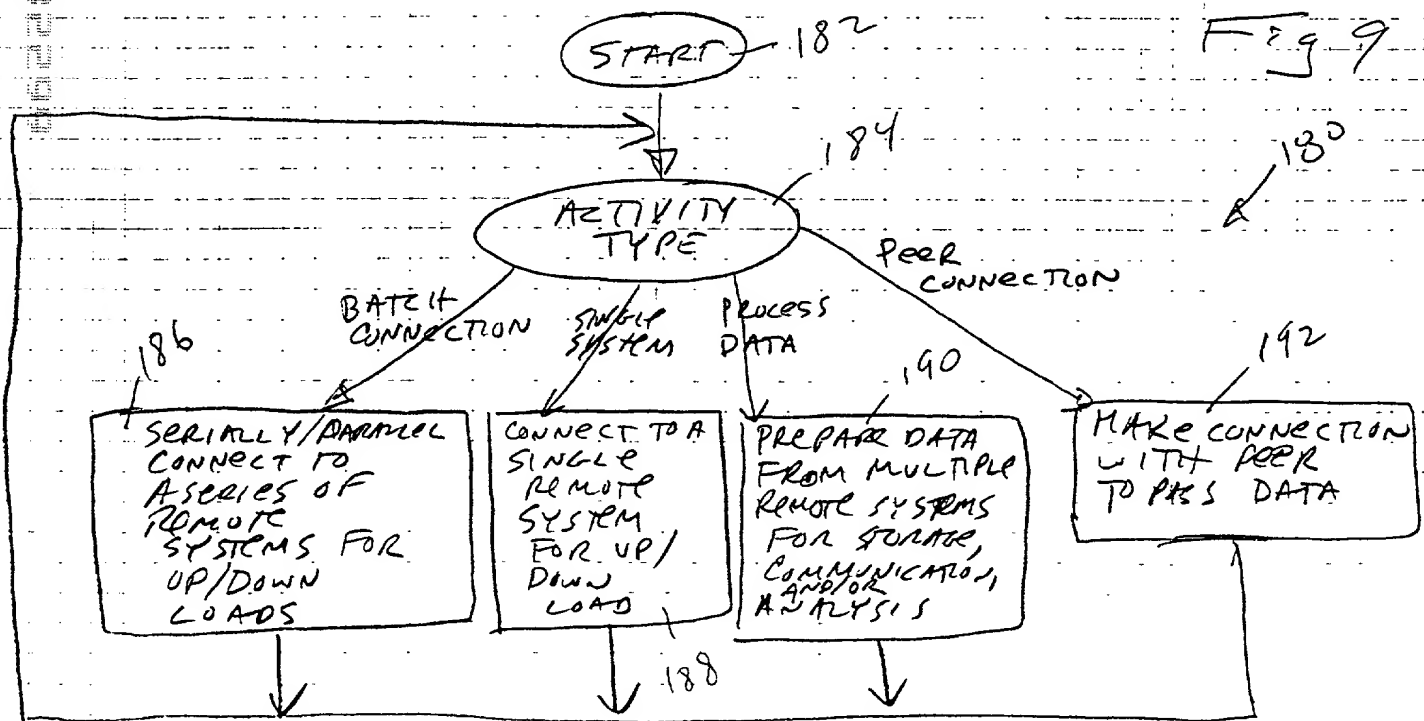 Fig 9
START 182
184
180
ACTIVITY
TYPE
PEER
CONNECTION
BATCH
CONNECTION
SINGLE
SYSTEM
PROCESS
DATA
186
190
192
SERIALLY/PARALLEL
CONNECT TO
A SERIES OF
REMOTE
SYSTEMS FOR
UP/DOWN
LOADS
CONNECT TO A
SINGLE
REMOTE
SYSTEM
FOR UP/
DOWN
LOAD
188
PREPARE DATA
FROM MULTIPLE
REMOTE SYSTEMS
FOR STORAGE,
COMMUNICATION,
AND/OR
ANALYSIS
MAKE CONNECTION
WITH PEER
TO PASS DATA